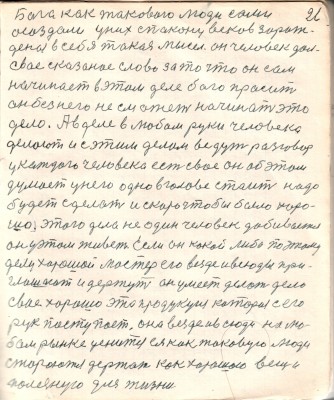 21
Бога как такового люди сами
создали у них спакону веков зарож-
дена, в себя такая мысль. он человек дал
свае сказаное слово за то что он сам
начинает в этом деле бога просит
он без него не сможет начинать это
дело. А в деле в любом руки человека
делают и с этим делом ведут разговор
у каждого человека есть свае он об этом
думает у него одно в голове стаит надо
будет сделат и скоро чтобы было харо-
шо, этого дела не один человек добивается
он у этом живет. Если он какой либо по этому
делу хороший мастер его везде и всюды при-
глашают и держут он умеет делат дело
свае хорошо эта продукция которая с его
рук паступает, она везде и всюде на лю-
бом рынке ценится як как таковую люди
стараются держат как хорошаю вещ и
полезную для жизни.